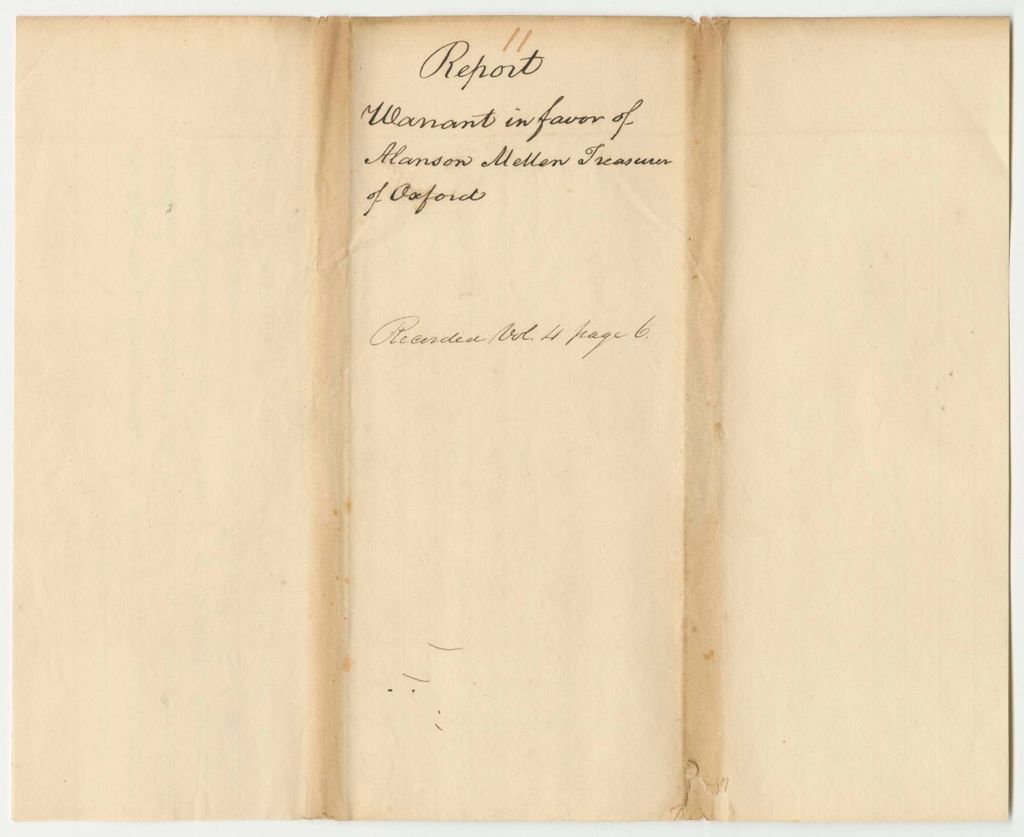 11
Report
Warrant in favor of
Alanson Mellen Treasurer
of Oxford
Recorded Vol. 4 page 6.